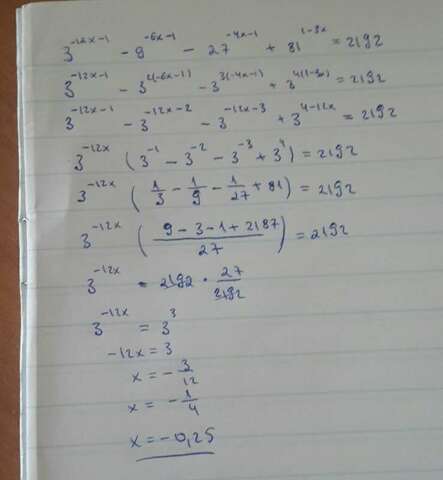 3^{-12x-1} - 9^{-6x-1} - 27^{-4x-1} + 81^{1-3x} = 2192
3^{-12x-1} - 3^{2(-6x-1)} - 3^{3(-4x-1)} + 3^{4(1-3x)} = 2192
3^{-12x-1} - 3^{-12x-2} - 3^{-12x-3} + 3^{4-12x} = 2192
3^{-12x} (3^{-1} - 3^{-2} - 3^{-3} + 3^{4}) = 2192
3^{-12x} (1/3 - 1/9 - 1/27 + 81) = 2192
3^{-12x} ((9-3-1+2187)/27) = 2192
3^{-12x} = 2192 · 27/2192
3^{-12x} = 3^{3}
-12x = 3
x = -3/12
x = -1/4
x = -0,25